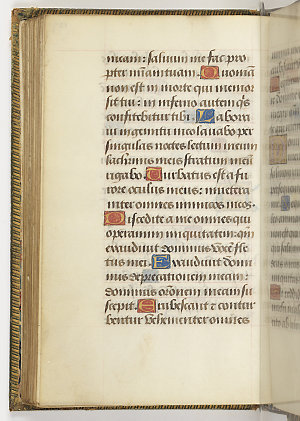 meam: salvum me fac pro
pter mīam tuam. Quoniā
non est in morte qui memor
sit tui: in inferno autem q̄s
confitebitur tibi. Labora
vi in gemitu meo lavabo per
singulas noctes lectum meum
lachrimis meis stratum meū
rigabo. Turbatus est a fu
rore oculus meus: invetera
inter omnes inimicos meos.
Discedite a me omnes qui
operamini iniquitatem: qm̄
exaudivit dominus vocē fle
tus mei. Exaudivit domi
nus deprecationem meam:
dominus orōnem meam su
scepit. Erubescant et contur
bentur vehementer omnes